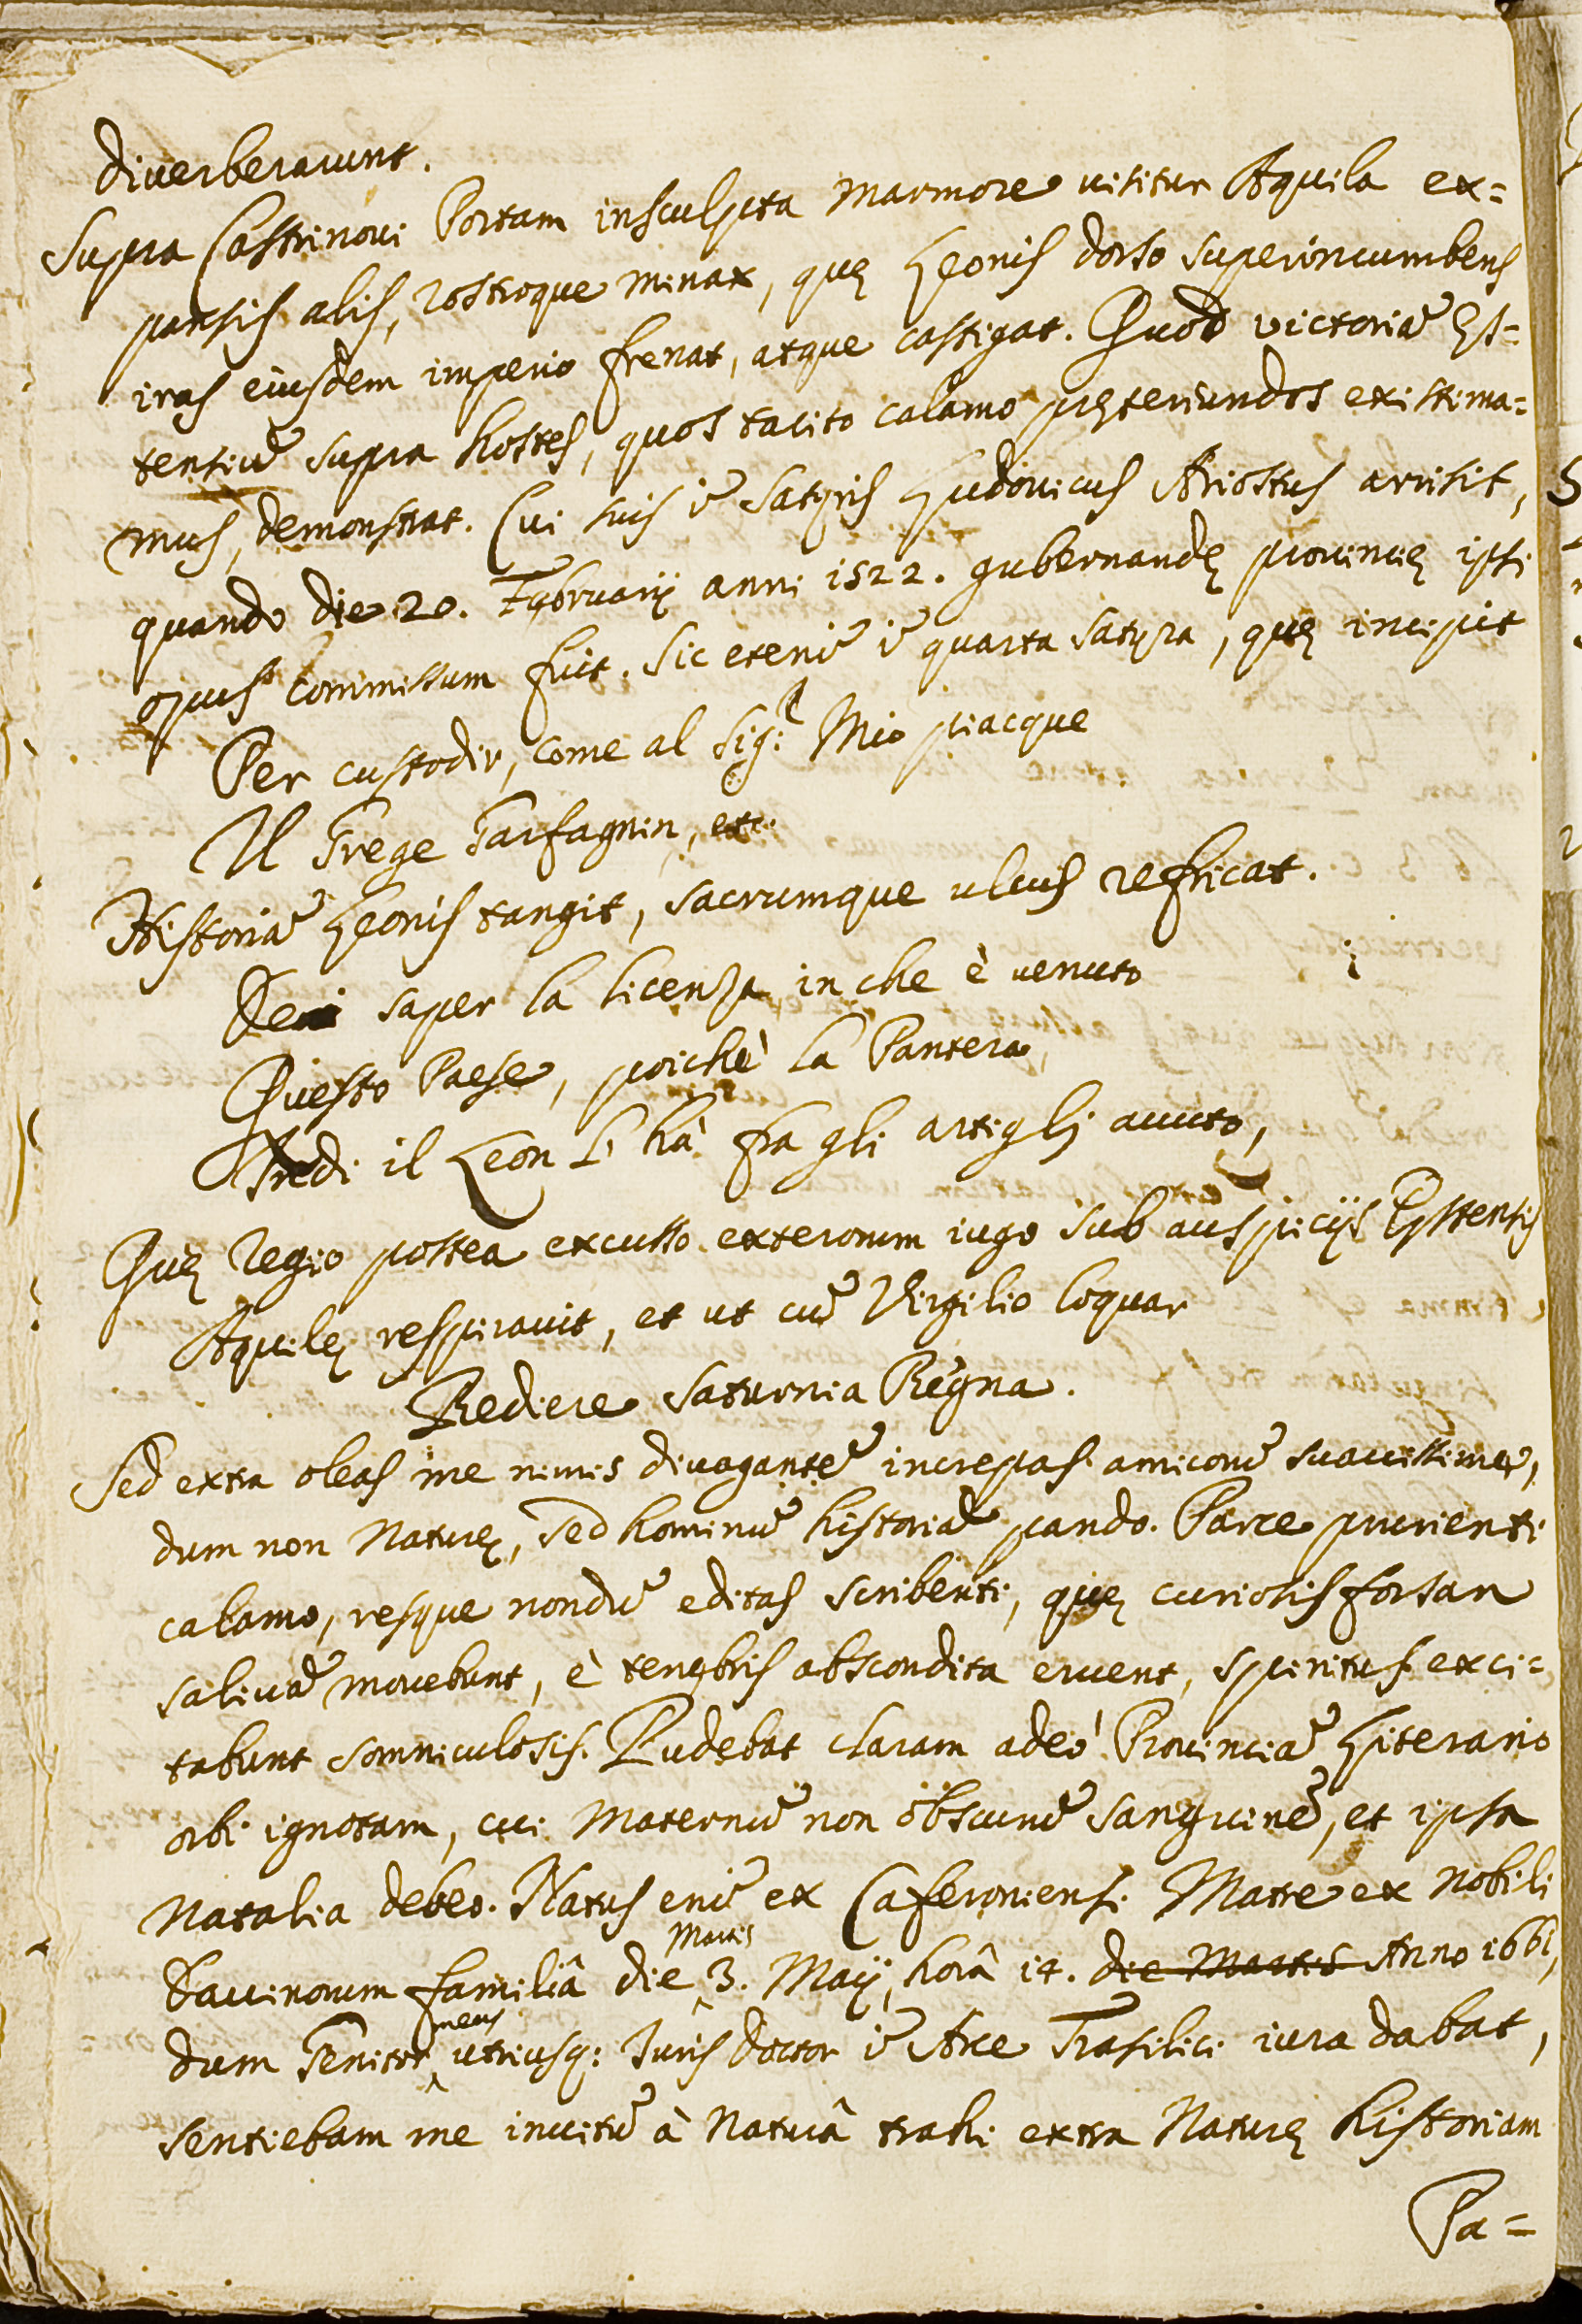 diverberarunt.
Supra Castrinovi Portam insculpta Marmore visitur Aquila ex=
pansis alis, rostroque minax, quę Leonis dorso superincumbens
iras eiusdem imperio frenat, atque castigat. Quod victoriã Es=
tensiũ supra hostes, quos tacito calamo prętereundos existima=
mus, demonstrat. Cui suis ĩ Satyris Ludovicus Ariostus arrisit,
quando die 20. Februarij anni 1522. gubernandę provincię ipsi
opus commissum fuit. Sic etenĩ ĩ quarta Satyra, quę incipit
Per custodir, come al Sig.r Mio piacque
Il Grege Garfagnin, etc.
Historiã Leonis tangit, sacrumque ulcus refricat.
Dei saper la licenza in che è venuto
Questo Paese, poichè la Pantera,
Indi il Leon l'hà fra gli artiglj avuto,
Quę Regio postea excusso exterorum iugo sub auspicijs Estensis
Aquilę respiravit, et ut cũ Virgilio loquar
Rediere Saturnia Regna.
Sed extra oleas me nimis divagantẽ increpas amicorũ suavissime,
dum non Naturę, sed hominũ historiã pando. Parce prurienti
calamo, resque nondũ editas scribenti, quę curiosis forsan
salivã movebunt, è tenębris abscondita eruent, spiritus exci=
tabunt somniculosis. Pudebat claram adeò Provinciã Literario
orbi ignotam, cui Maternũ non obscurũ sanguinẽ, et ipsa
Natalia debeo. Natus enĩ ex Caferoniensi Matre ex Nobili
Davinorum familiâ die Martis 3. Maij, horâ 14. die Martis Anno 1661,
dum Genitor meus utriusq: Juris Doctor ĩ Arce Trasilici iura dabat,
sentiebam me invitũ à Naturâ trahi extra Naturę historiam
Pa=